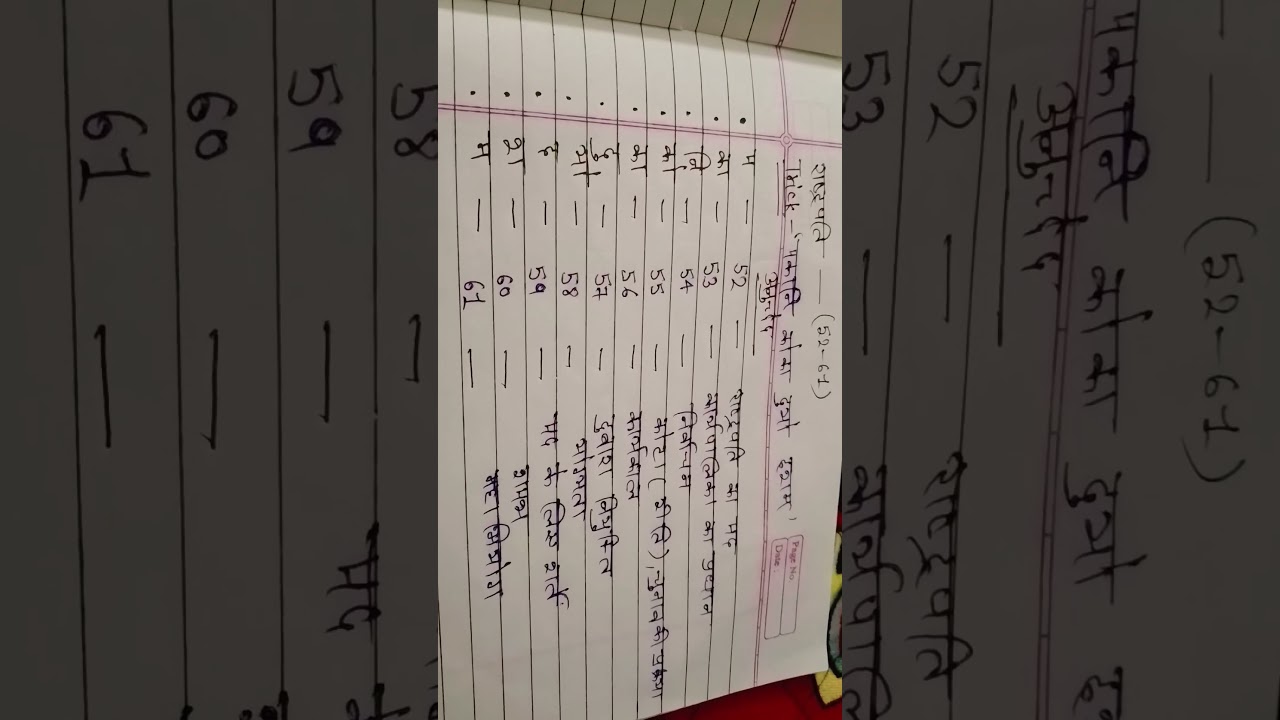 राष्ट्रपति — (52-61)
Trick - "पकानि को का दुयो हशम"
Page No.
Date:
अनुच्छेद
• प — 52 — राष्ट्रपति का पद
• का — 53 — कार्यपालिका का प्रधान
• नि — 54 — निर्वाचन
• को — 55 — कोटा (रीति), चुनाव की प्रक्रिया
• का — 56 — कार्यकाल
• दु — 57 — दुबारा नियुक्ति
• यो — 58 — योग्यता
• ह — 59 — पद के लिए शर्तें
• श — 60 — शपथ
• म — 61 — महाभियोग